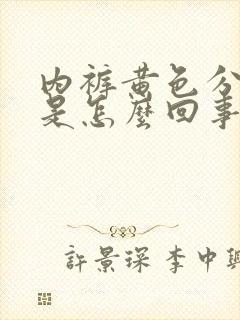 内裤黄色分
是怎麽回事
許景琛 李中興